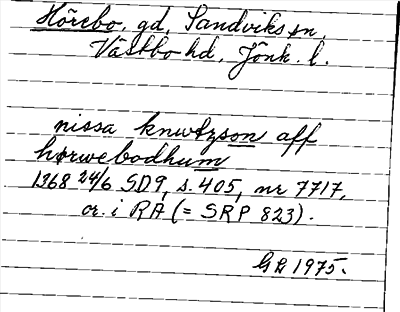 Hörebo, gd, Sandviks sn,
Västbo hd, Jönk. l.
nissa knwtzson aff
hørwebodhum
1368 24/6 SD9, s. 405, nr 7717,
or. i RA (= SRP 823).
GL 1975.